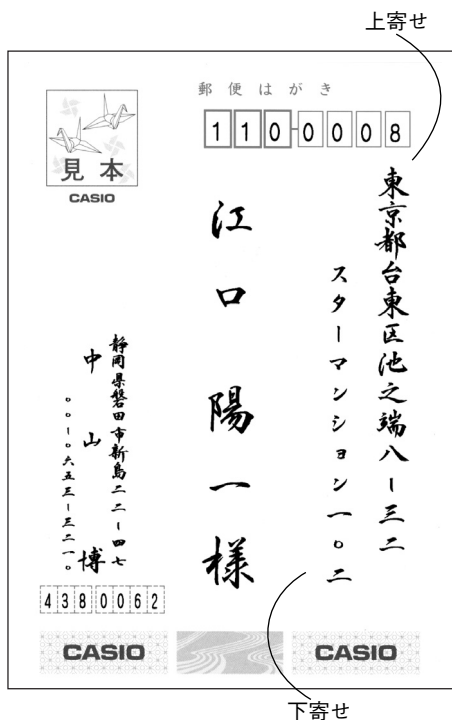 上寄せ
郵便はがき
110-0008
見本
CASIO
東京都台東区池之端八ー三二
スターマンション一〇二
江口陽一様
静岡県磐田市新島二二ー四七
中山博
〇〇一〇六五三ー三二一〇
4380062
CASIO
CASIO
下寄せ